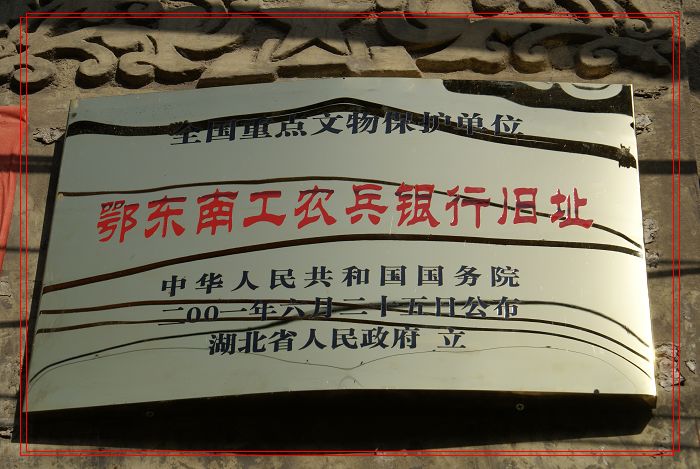 全国重点文物保护单位
鄂东南工农兵银行旧址
中华人民共和国国务院
二〇〇一年六月二十五日公布
湖北省人民政府 立